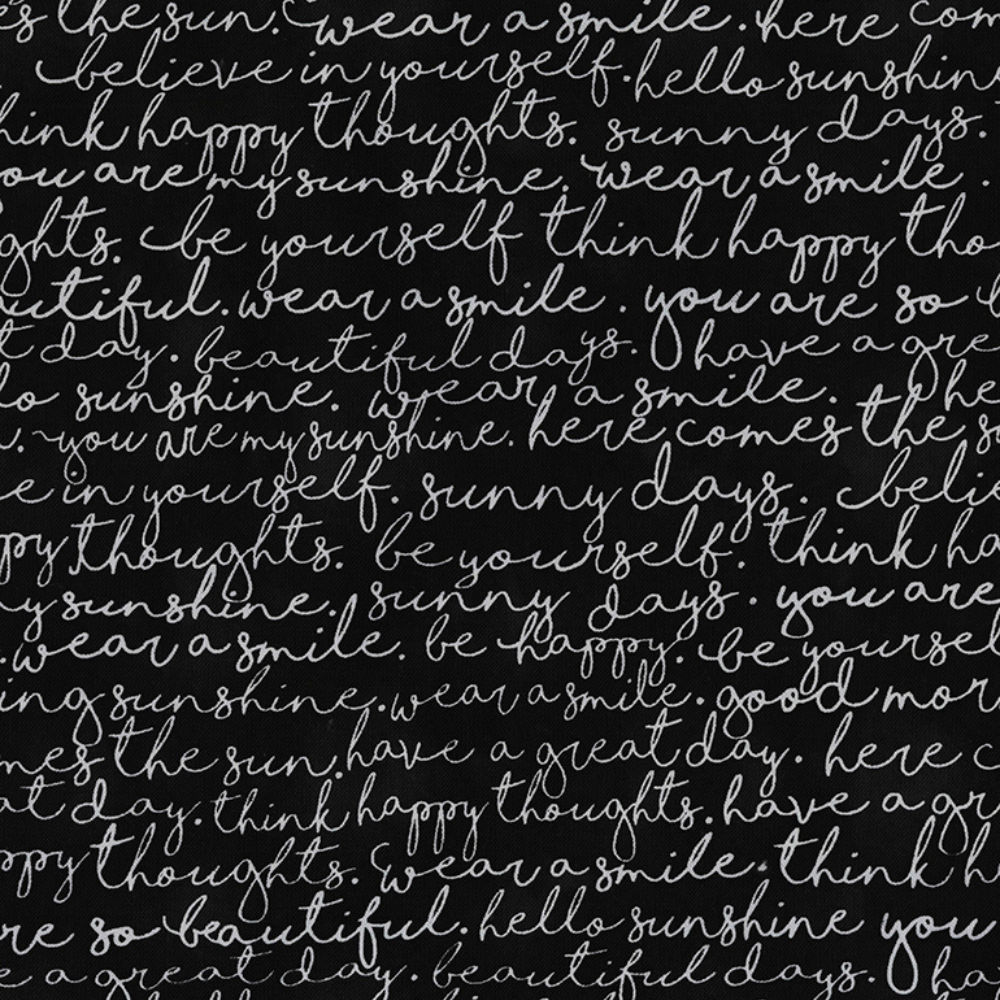 s the sun. wear a smile. here com
believe in yourself. hello sunshin
hink happy thoughts. sunny days.
ou are my sunshine. wear a smile.
ghts. be yourself think happy tho
utiful. wear a smile. you are so b
t day. beautiful days. have a gre
lo sunshine. wear a smile. the
. you are my sunshine. here comes the s
e in yourself. sunny days. belie
py thoughts. be yourself. think ha
y sunshine. sunny days. you are
.wear a smile. be happy. be yoursel
ing sunshine. wear a smile. good mor
mes the sun. have a great day. here c
at day. think happy thoughts. have a gr
ppy thoughts. wear a smile. think h
re so beautiful. hello sunshine you
e a great day. beautiful days. ha